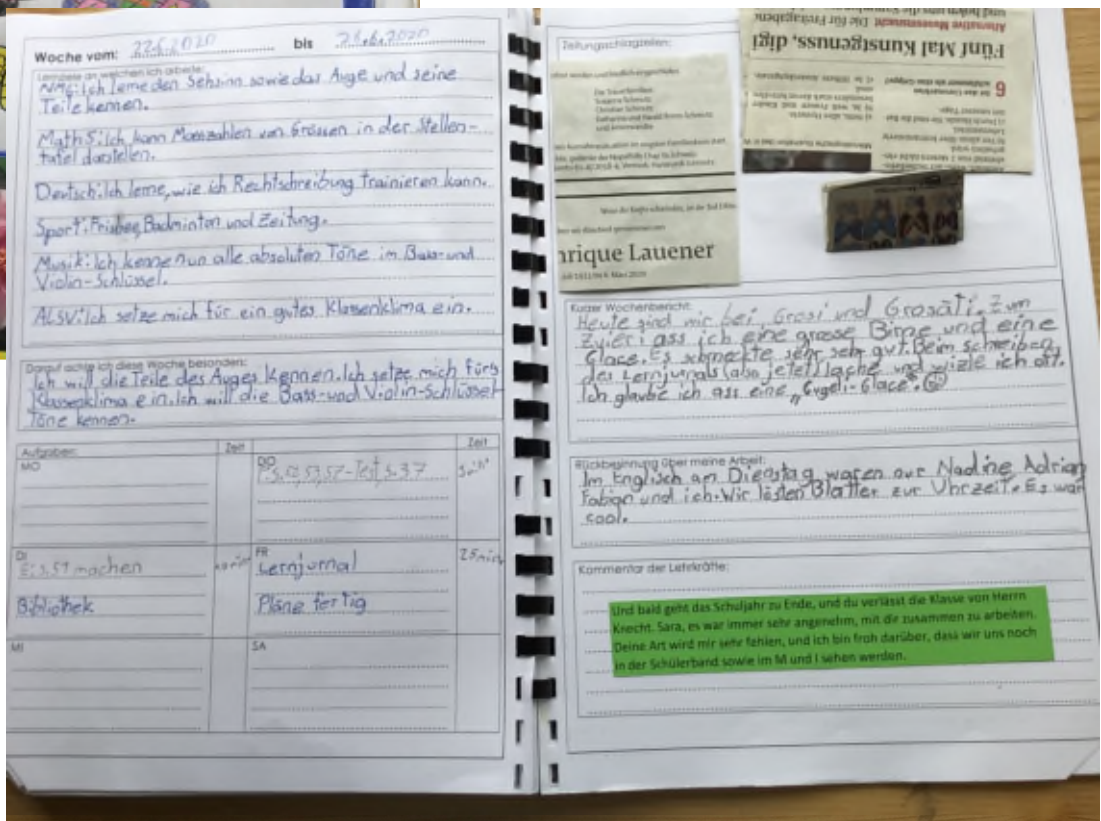 Woche vom: 22.6.2020 bis 26.6.2020
Lernziele an welchen ich arbeite:
NMG: Ich lerne den Sehsinn sowie das Auge und seine
Teile kennen.
Math 5: Ich kann Masszahlen von Grössen in der Stellen-
tafel darstellen.
Deutsch: Ich lerne, wie ich Rechtschreibung trainieren kann.
Sport: Frisbee, Badminton und Zeitung.
Musik: Ich kenne nun alle absoluten Töne im Bass- und
Violin-Schlüssel.
ALSV: Ich setze mich für ein gutes Klassenklima ein.
Darauf achte ich diese Woche besonders:
Ich will die Teile des Auges kennen. Ich setze mich fürs
Klassenklima ein. Ich will die Bass- und Violin-Schlüssel
Töne kennen.
Aufgaben: Zeit Zeit
MO
DO
DI
51 machen
Bibliothek
FR 25 min
Lernjurnal
Pläne fertig
MI
SA
Zeitungsschlagzeilen:
Die Trauerfamilien:
nrique Lauener
Fünf Mal Kunstgenuss, digi
Alternative Museumsnacht Die für Freitagabend
6
Kurzer Wochenbericht:
Heute sind mir bei Grosi und Grosäti. Zum
Zvieri ass ich eine grosse Birne und eine
Glace. Es schmeckte sehr sehr gut. Beim schreiben
des Lernjurnals (also jetzt) lache und wizle ich oft.
Ich glaube ich ass eine „Gugeli-Glace".
Rückbesinnung über meine Arbeit:
Im Englisch am Dienstag waren nur Nadine Adrian
Fabian und ich. Wir lösten Blätter zur Uhrzeit. Es war
cool.
Kommentar der Lehrkräfte:
Und bald geht das Schuljahr zu Ende, und du verlässt die Klasse von Herrn
Knecht. Sara, es war immer sehr angenehm, mit dir zusammen zu arbeiten.
Deine Art wird mir sehr fehlen, und ich bin froh darüber, dass wir uns noch
in der Schülerband sowie im M und I sehen werden.